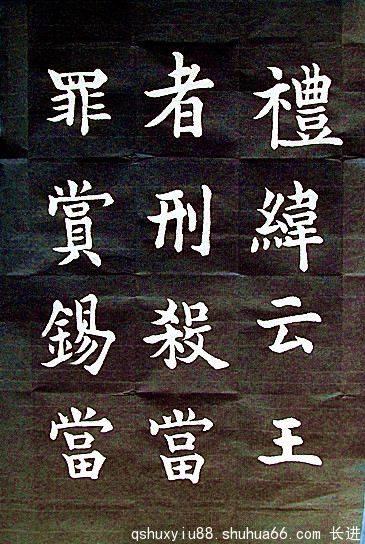 禮緯云王
者刑殺當
罪賞錫當
qshuxyiu88.shuhua66.com 长进